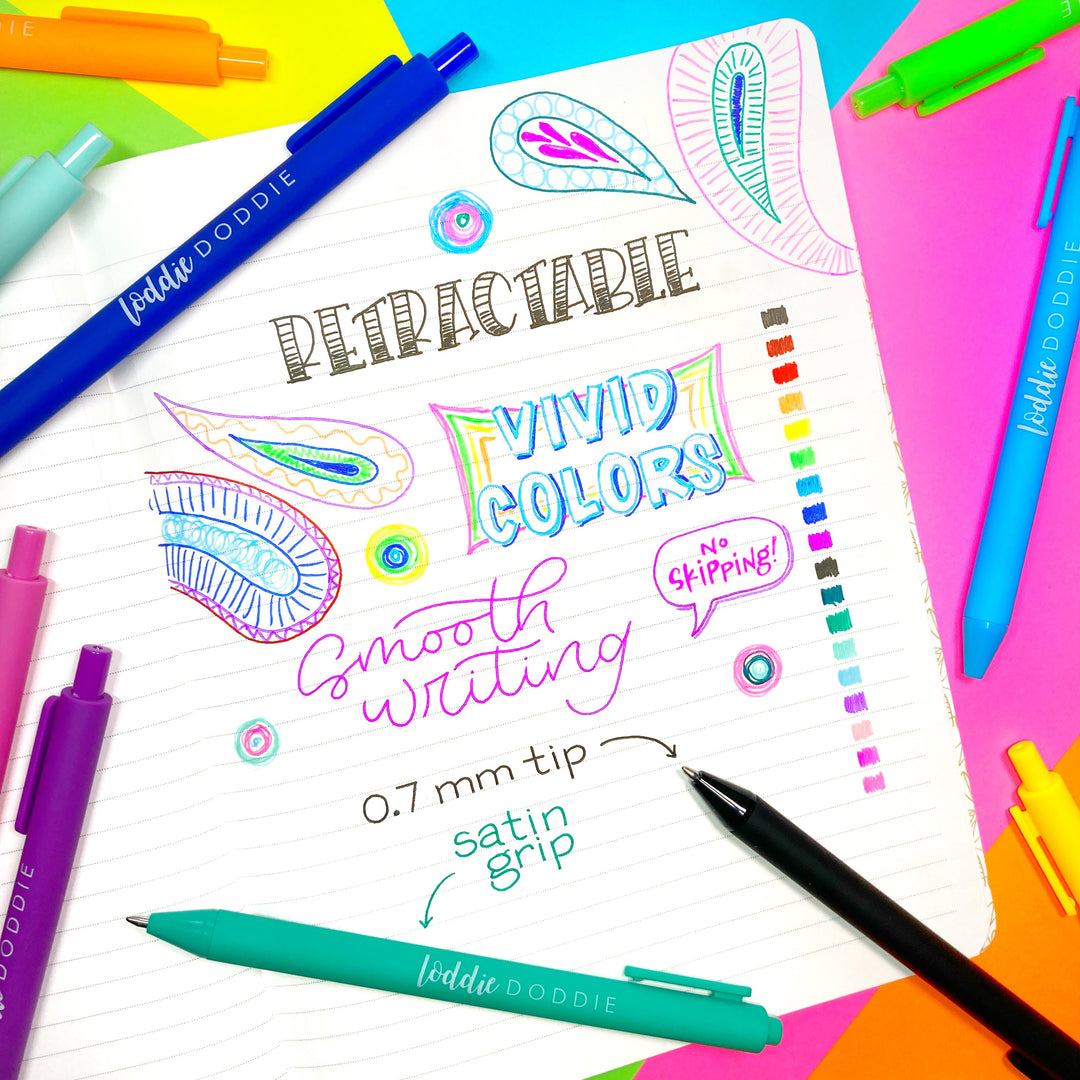 DIE
loddie DODDIE
RETRACTABLE
VIVID
COLORS
No
SKiPPiNg!
loddie DODDIE
smooth
writing
0.7 mm tip
satin
grip
DODDIE
loddie DODDIE